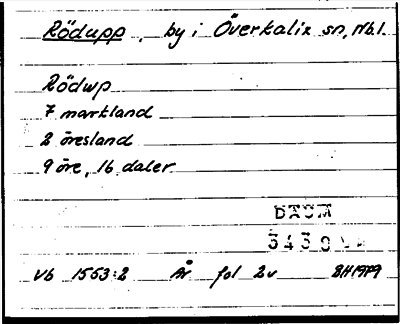 Rödupp, by i Överkalix sn, Nbl.
Rödwp
7 markland
2 öresland
9 öre, 16 daler
DAUM
3430
Vb 1553:2 År fol 2v BH1979